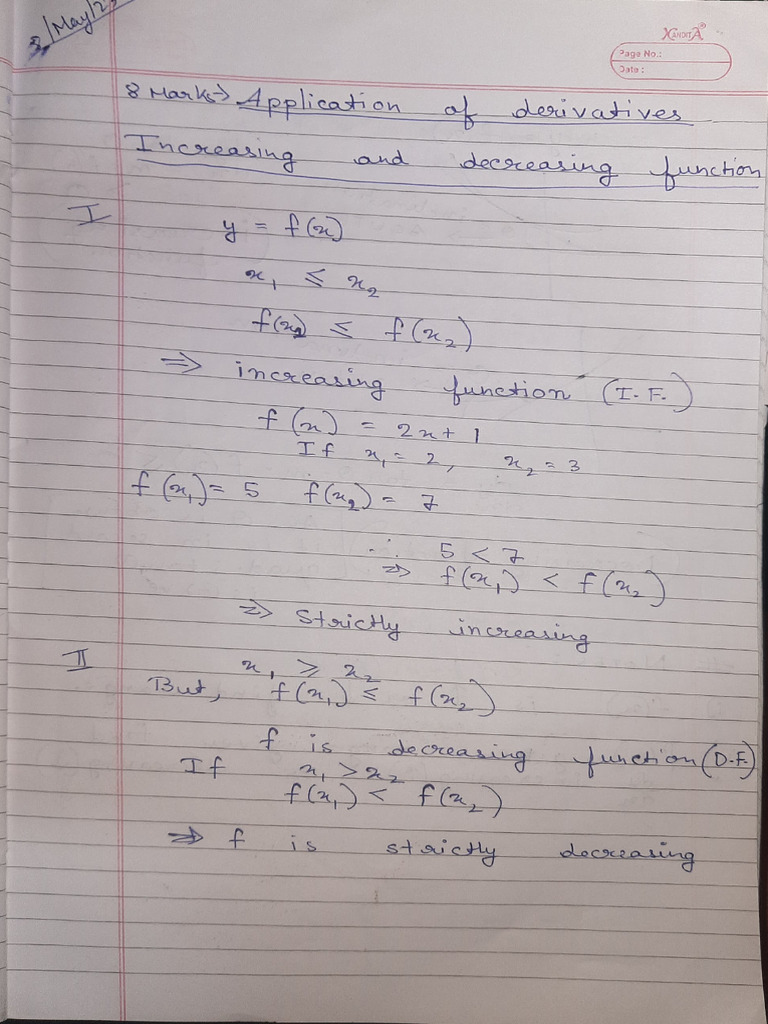 3/May/2
XANDITA®
Page No.:
Date:
8 Marks→ Application of derivatives
Increasing and decreasing function
I
y = f(x)
x₁ ≤ x₂
f(x₁) ≤ f(x₂)
⇒ increasing function (I.F.)
f(x) = 2x+1
If x₁ = 2, x₂ = 3
f(x₁) = 5 f(x₂) = 7
∴ 5 < 7
⇒ f(x₁) < f(x₂)
⇒ Strictly increasing
II
x₁ ≥ x₂
But, f(x₁) ≤ f(x₂)
f is decreasing function (D.F.)
If x₁ > x₂
f(x₁) < f(x₂)
⇒ f is strictly decreasing